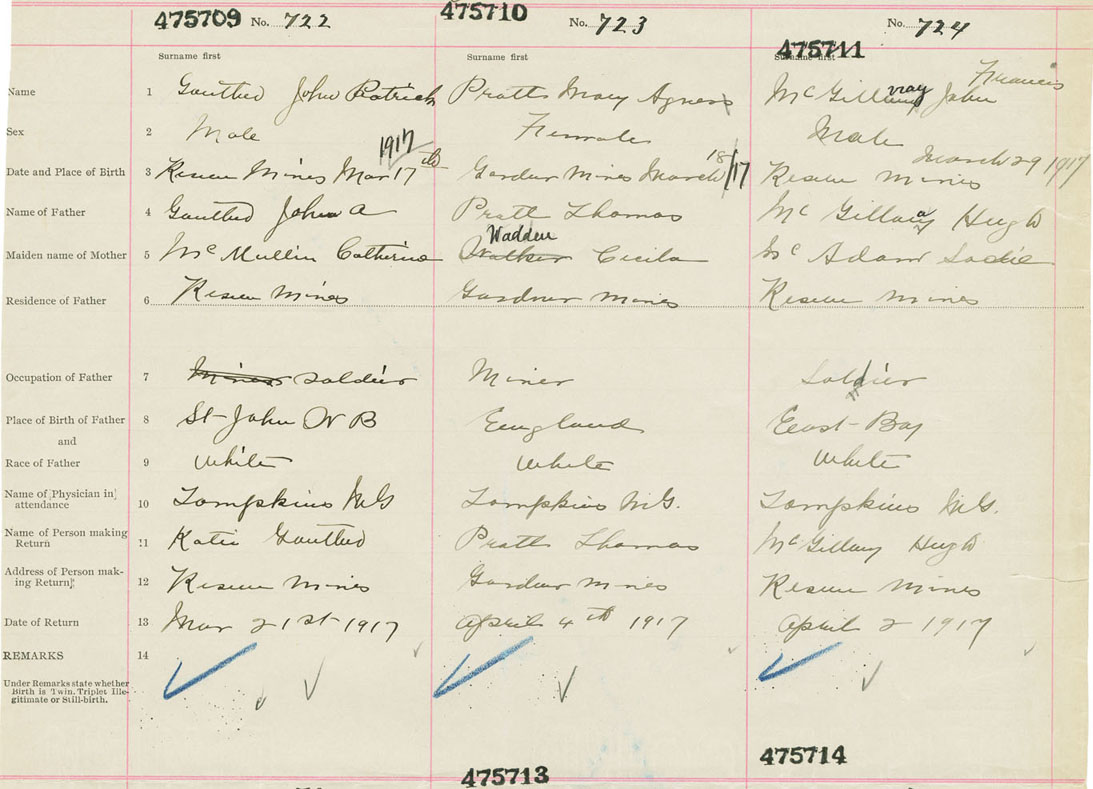 475709 No. 722
475710 No. 723
475711 No. 724
Surname first Surname first Surname first
Name 1 John Patrick Pratt Mary Agnes McGillivray John Francis
Sex 2 Male Female Male
Date and Place of Birth 3 Reserve Mines Mar 17th 1917 Gardner Mines March 18/17 Reserve Mines March 29 1917
Name of Father 4 John A Pratt Thomas Hugh
Maiden name of Mother 5 McMullin Catherine Walker Wadden Cecila McAdam Sadie
Residence of Father 6 Reserve Mines Gardner Mines Reserve Mines
Occupation of Father 7 Miner Soldier Miner Soldier
Place of Birth of Father 8 St John N B England East Bay
and
Race of Father 9 White White White
Name of [Physician in] attendance 10 Tompkins M.G. Tompkins M.G. Tompkins M.G.
Name of Person making Return 11 Katie Pratt Thomas Hugh
Address of Person making Return] 12 Reserve Mines Gardner Mines Reserve Mines
Date of Return 13 Mar 21st 1917 April 4th 1917 April 2 1917
REMARKS 14
Under Remarks state whether
Birth is Twin, Triplet Ille-
gitimate or Still-birth.
475713
475714